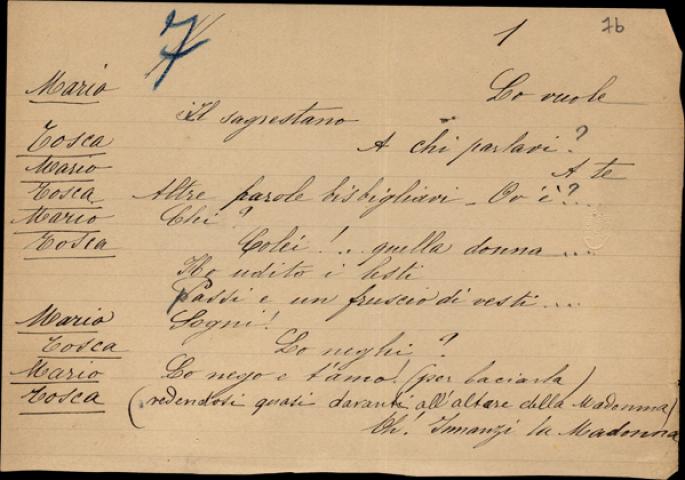 7 1 7b
Mario Lo vuole
Il sagrestano
Tosca A chi parlavi?
Mario A te
Tosca Altre parole bisbigliavi _ Ov'è?...
Mario Chi?
Tosca Colei!.. quella donna...
Ho udito i lesti
passi e un fruscio di vesti...
Mario Sogni!
Tosca Lo neghi?
Mario Lo nego e t'amo! (per baciarla)
Tosca (vedendosi quasi davanti all'altare della Madonna)
Oh! Innanzi la Madonna